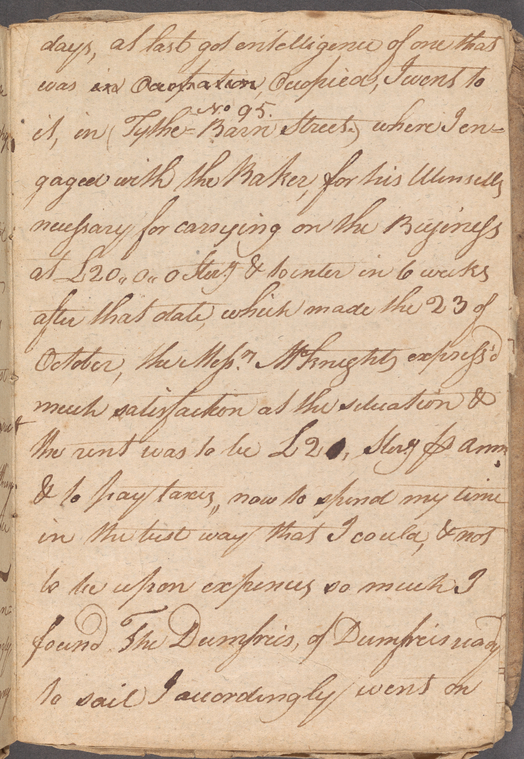 days, at last got entelligence of one that
was in Occupied, I went to
No 95.
it, in (Tythe=Barn Street,) where I en=
gaged with the Baker, for his Utensells
necessary for carrying on the Business
at £20,,0,,0 Sterg & to enter in 6 weeks
after that date, which made the 23 of
October, the Messrs McKnights express'd
much satisfaction at the situation &
the rent was to be £20, Sterg ⅌ Annm
& to pay taxes,, now to spend my time
in the best way that I could, & not
to be upon expences so much I
found The Dumfreis, of Dumfreis ready
to sail I accordingly went on